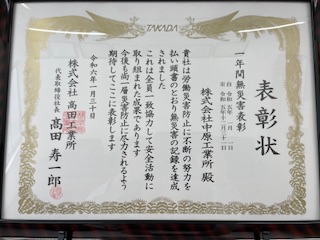 TAKADA
表彰状
一年間無災害表彰
自 令和五年一月一日
至 令和五年十二月三十一日
株式会社中原工業所 殿
貴社は労働災害防止に不断の努力を
払い頭書のとおり無災害の記録を達成
されました
これは全員一致協力して安全活動に
取り組まれた成果であります
今後も尚一層災害防止に尽力されるよう
期待してここに表彰します
令和六年一月三十日
株式会社 高田工業所
代表取締役社長 高田 寿一郎